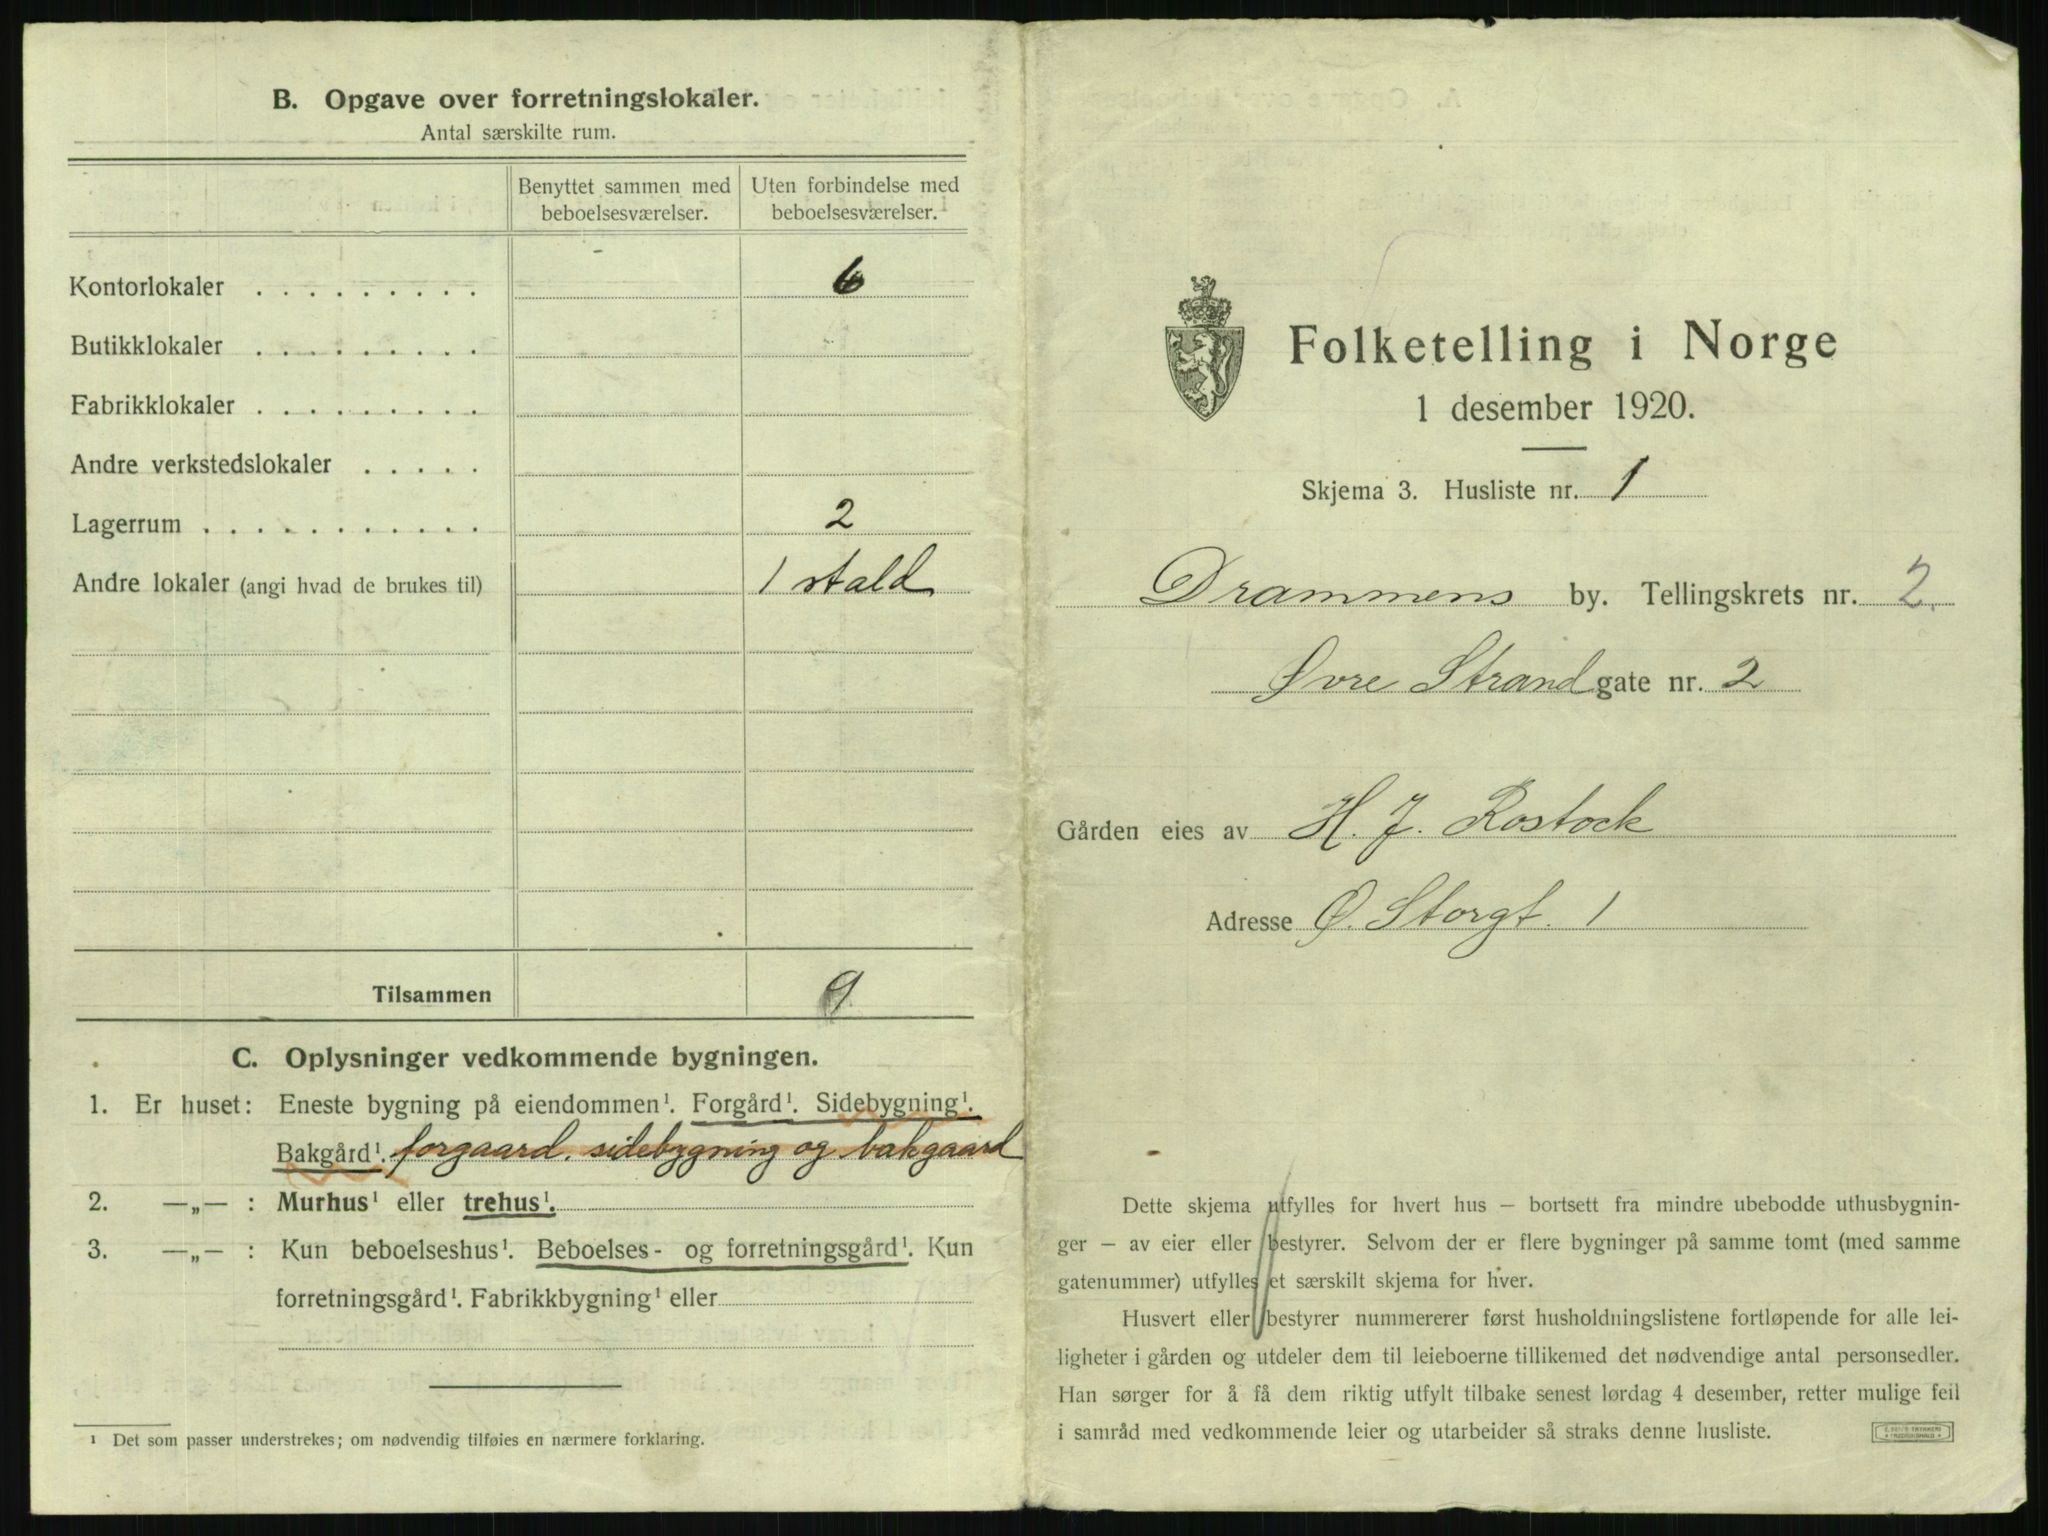 B. Opgave over forretningslokaler.
Antal særskilte rum.
Benyttet sammen med beboelsesværelser.
Uten forbindelse med beboelsesværelser.
Kontorlokaler . . . . . . . . . 6
Butikklokaler . . . . . . . . .
Fabrikklokaler . . . . . . . . .
Andre verkstedslokaler . . . . .
Lagerrum . . . . . . . . . . . 2
Andre lokaler (angi hvad de brukes til) 1 stald
Tilsammen 9
C. Oplysninger vedkommende bygningen.
1. Er huset: Eneste bygning på eiendommen¹. Forgård¹. Sidebygning¹.
Bakgård¹. forgaard, sidebygning og bakgaard
2. —„— : Murhus¹ eller trehus¹.
3. —„— : Kun beboelseshus¹. Beboelses- og forretningsgård¹. Kun
forretningsgård¹. Fabrikkbygning¹ eller
¹ Det som passer understrekes; om nødvendig tilføies en nærmere forklaring.
Folketelling i Norge
1 desember 1920.
Skjema 3. Husliste nr. 1
Drammens by. Tellingskrets nr. 2.
Øvre Strand gate nr. 2
Gården eies av H. J. Rostock
Adresse Ø. Storgt. 1
Dette skjema utfylles for hvert hus – bortsett fra mindre ubebodde uthusbygnin-
ger – av eier eller bestyrer. Selvom der er flere bygninger på samme tomt (med samme
gatenummer) utfylles et særskilt skjema for hver.
Husvert eller bestyrer nummererer først husholdningslistene fortløpende for alle lei-
ligheter i gården og utdeler dem til leieboerne tillikemed det nødvendige antal personsedler.
Han sørger for å få dem riktig utfylt tilbake senest lørdag 4 desember, retter mulige feil
i samråd med vedkommende leier og utarbeider så straks denne husliste.